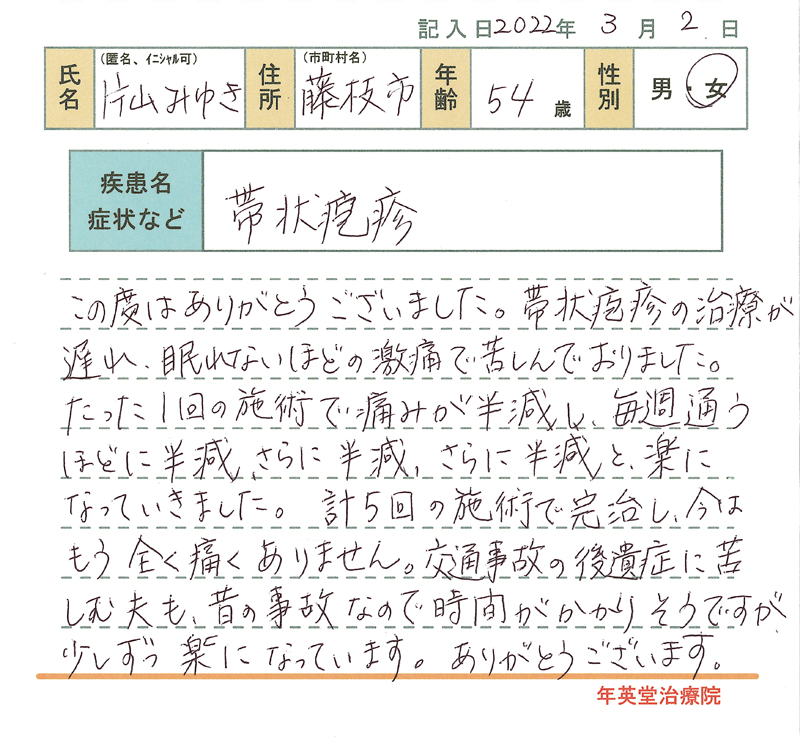 記入日2022年 3月 2日
氏名 (匿名、イニシャル可) 片山みゆき 住所 (市町村名) 藤枝市 年齢 54歳 性別 男・女
疾患名 症状など 帯状疱疹
この度はありがとうございました。帯状疱疹の治療が
遅れ、眠れないほどの激痛で苦しんでおりました。
たった1回の施術で痛みが半減し、毎週通う
ほどに半減、さらに半減、さらに半減と、楽に
なっていきました。計5回の施術で完治し、今は
もう全く痛くありません。交通事故の後遺症に苦
しむ夫も、昔の事故なので時間がかかりそうですが、
少しずつ楽になっています。ありがとうございます。
年英堂治療院